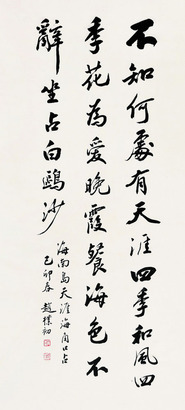 不知何處有天涯四季和風四
季花為愛晚霞餐海色不
辭坐占白鷗沙
海南島天涯海角口占
己卯春 趙樸初